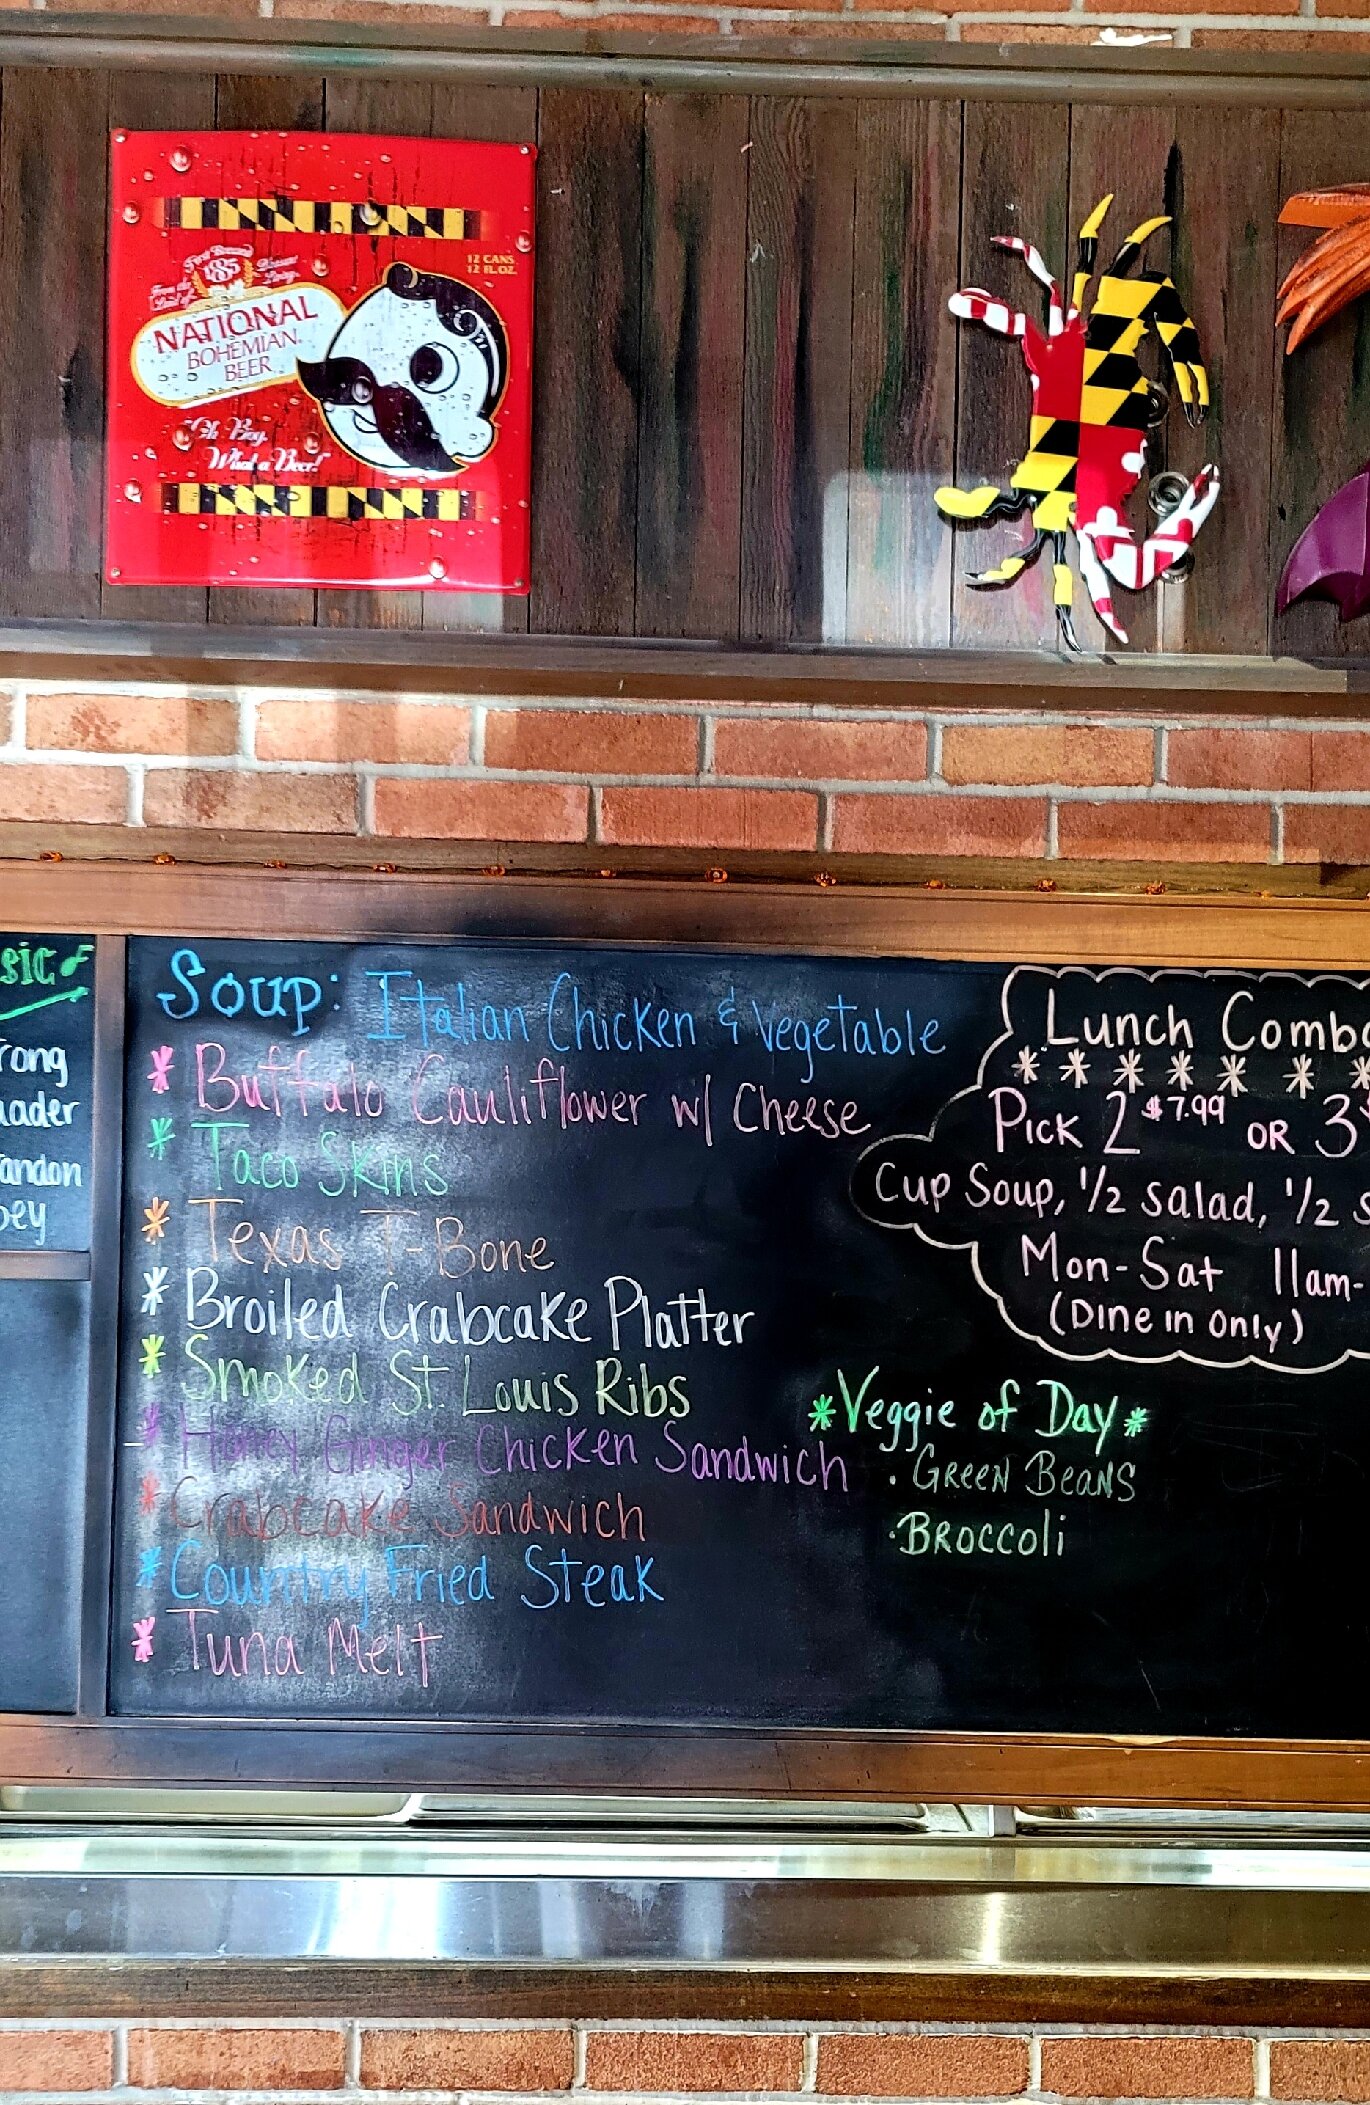 First Brewed
1885
From the Land of
Pleasant Living.
12 CANS
12 FL.OZ.
NATIONAL
BOHEMIAN
BEER
"Oh Boy,
What a Beer!"
SIC
rong
ader
andon
bey
Soup: Italian Chicken & Vegetable
* Buffalo Cauliflower w/ Cheese
* Taco Skins
* Texas T-Bone
* Broiled Crabcake Platter
* Smoked St. Louis Ribs
* Honey Ginger Chicken Sandwich
* Crabcake Sandwich
* Country Fried Steak
* Tuna Melt
Lunch Combo
* * * * * * *
Pick 2 $7.99 OR 3 $
Cup Soup, 1/2 Salad, 1/2 S
Mon-Sat 11am-
(Dine in only)
*Veggie of Day*
· GREEN BEANS
· BROCCOLi